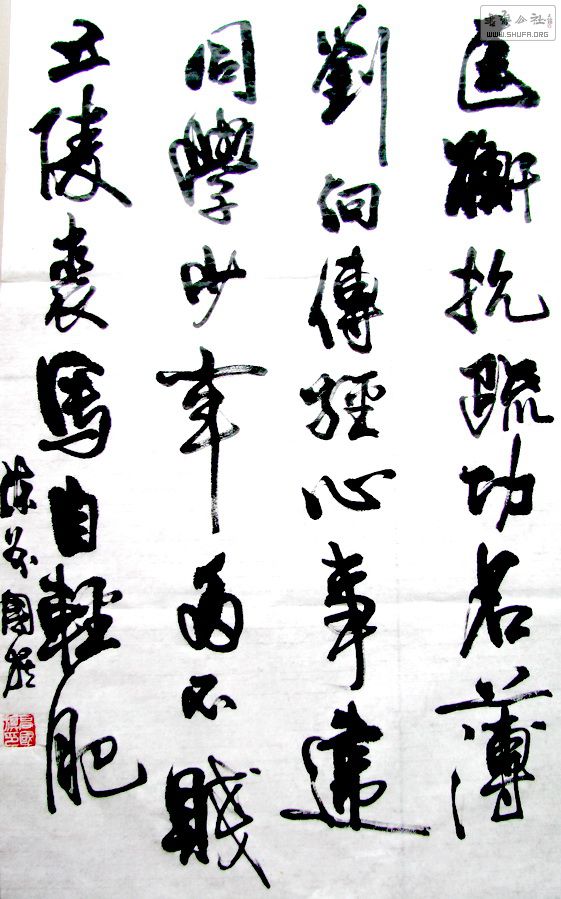 匡衡抗疏功名薄
劉向傳經心事違
同學少年多不賤
五陵裘馬自輕肥
公社
WWW.SHUFA.ORG